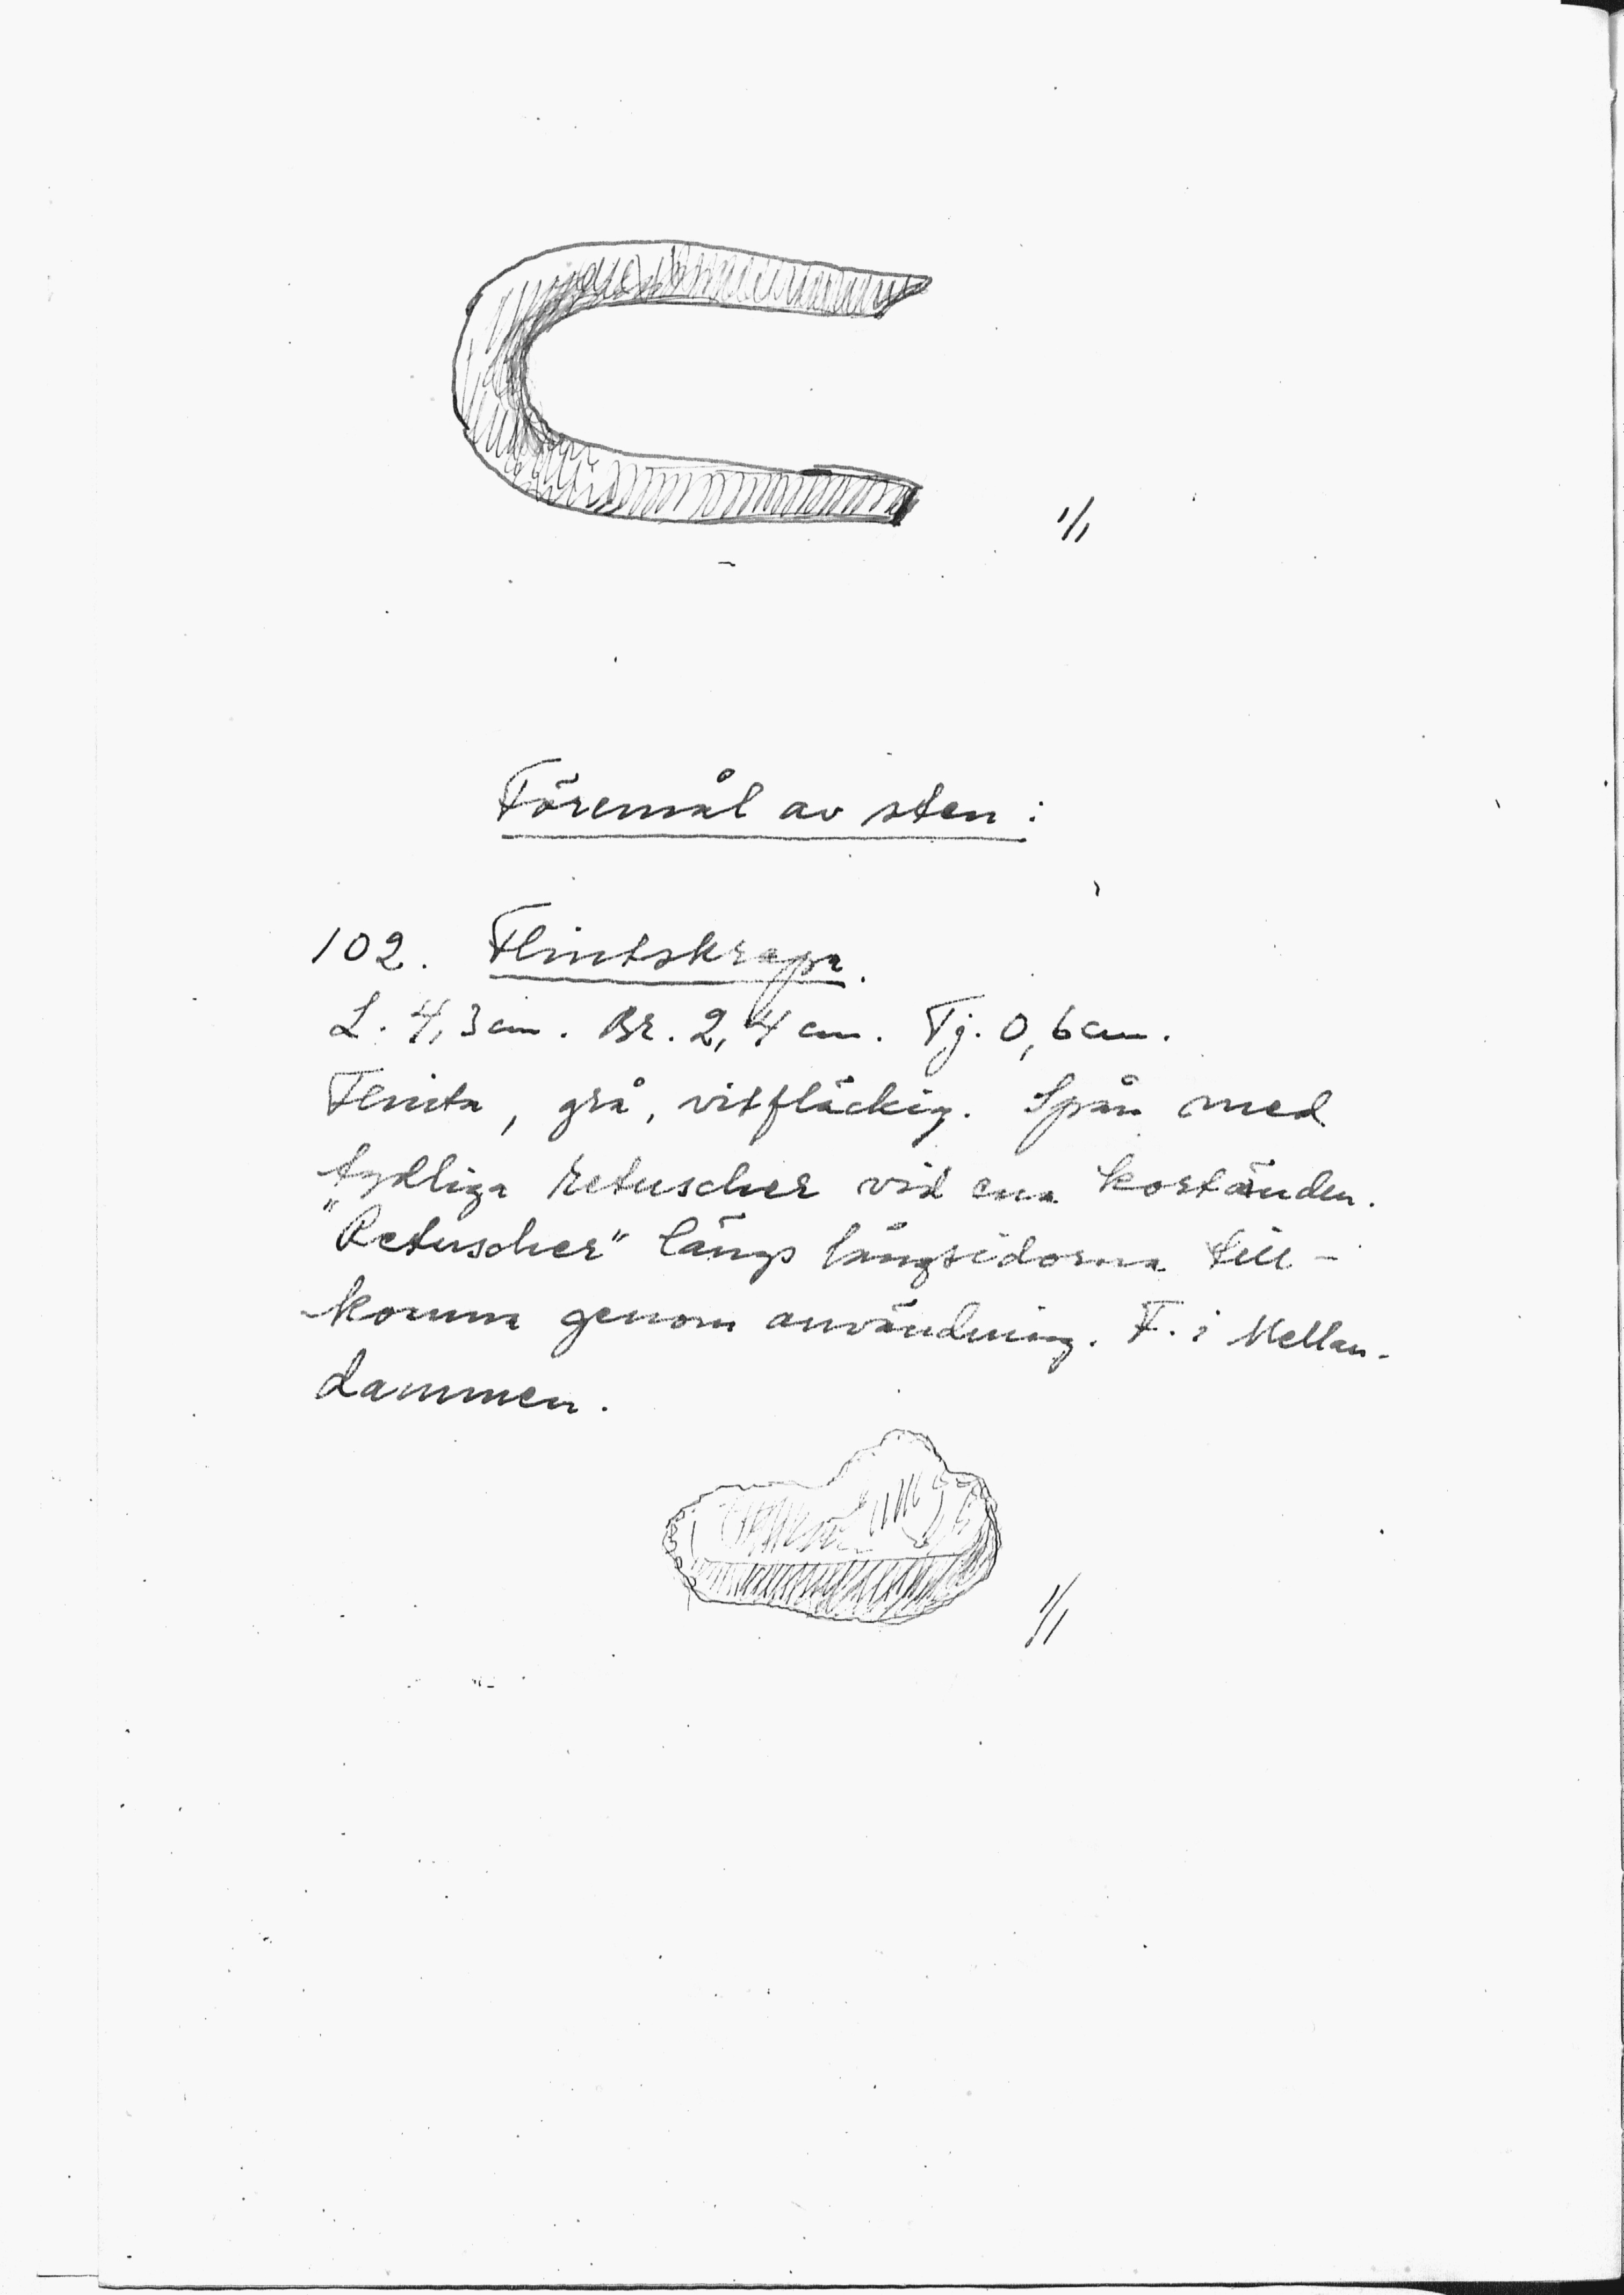 1/1
Föremål av sten:
102. Flintskrapa.
L. 4,3 cm. Br. 2,4 cm. Tj. 0,6 cm.
Flinta, grå, vitfläckig. Spån med
tydliga retuscher vid ena kortänden.
"Retuscher" längs långsidorna till-
komna genom användning. F. i Mellan-
dammen.
1/1